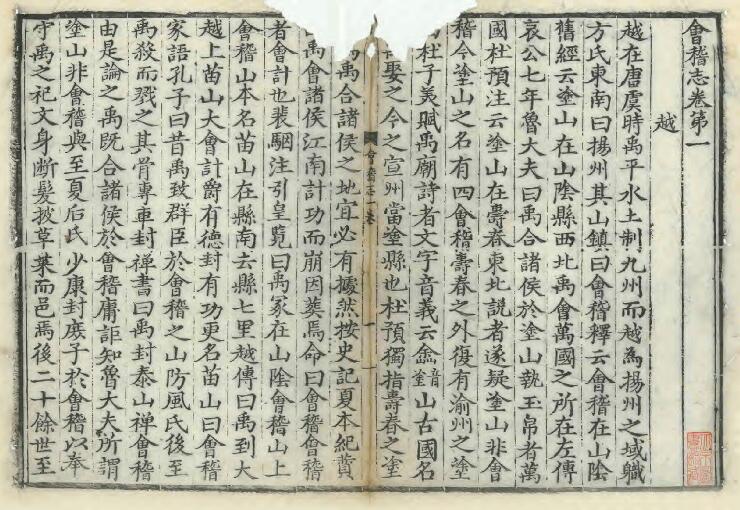 會稽志卷第一
越
越在唐虞時禹平水土制九州而越為揚州之域職
方氏東南曰揚州其山鎮曰會稽釋云會稽在山陰
舊經云塗山在山陰縣西北禹會萬國之所在左傳
哀公七年魯大夫曰禹合諸侯於塗山執玉帛者萬
國杜預注云塗山在壽春東北説者遂疑塗山非會
稽今塗山之名有四會稽壽春之外復有渝州之塗
杜子美賦禹廟詩者文字音義云嵞音塗山古國名
娶之今之宣州當塗縣也杜預獨指壽春之塗
會稽志一卷 一
禹合諸侯之地宜必有據然按史記夏本紀賛
禹會諸侯江南計功而崩因葬焉命曰會稽會稽
者會計也裴駰注引皇覽曰禹冢在山陰會稽山上
會稽山本名苗山在縣南去縣七里越傳曰禹到大
越上苗山大會計爵有德封有功更名苗山曰會稽
家語孔子曰昔禹致群臣於會稽之山防風氏後至
禹殺而戮之其骨專車封禪書曰禹封泰山禪會稽
由是論之禹既合諸侯於會稽庸詎知魯大夫所謂
塗山非會稽與至夏后氏少康封庻子於會稽以奉
守禹之祀文身斷髮披草萊而邑焉後二十餘世至